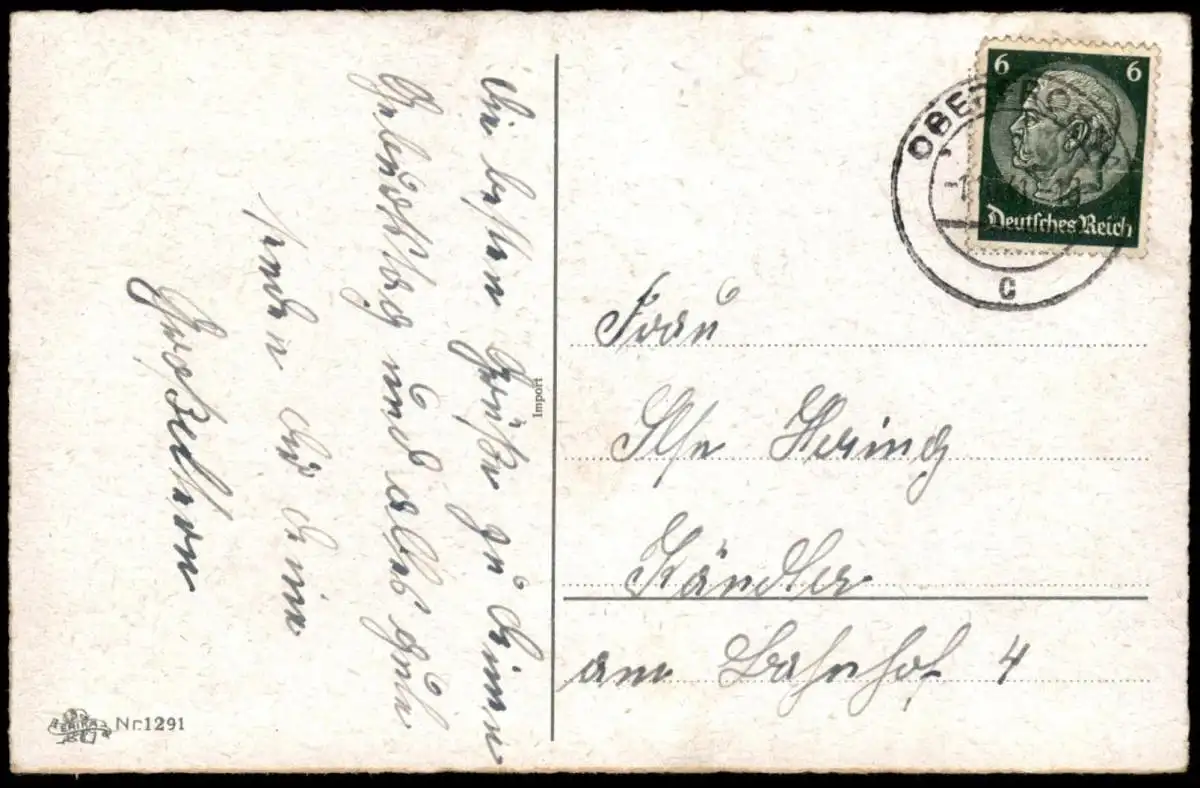 Die besten Grüße zu Deinem
Geburtstag und alles gute
senden Dir deine
Großeltern
Import
Frau
Ilse Hering
Kändler
am Bahnhof 4
6 6
Deutsches Reich
C
ERIKA
Nr.1291